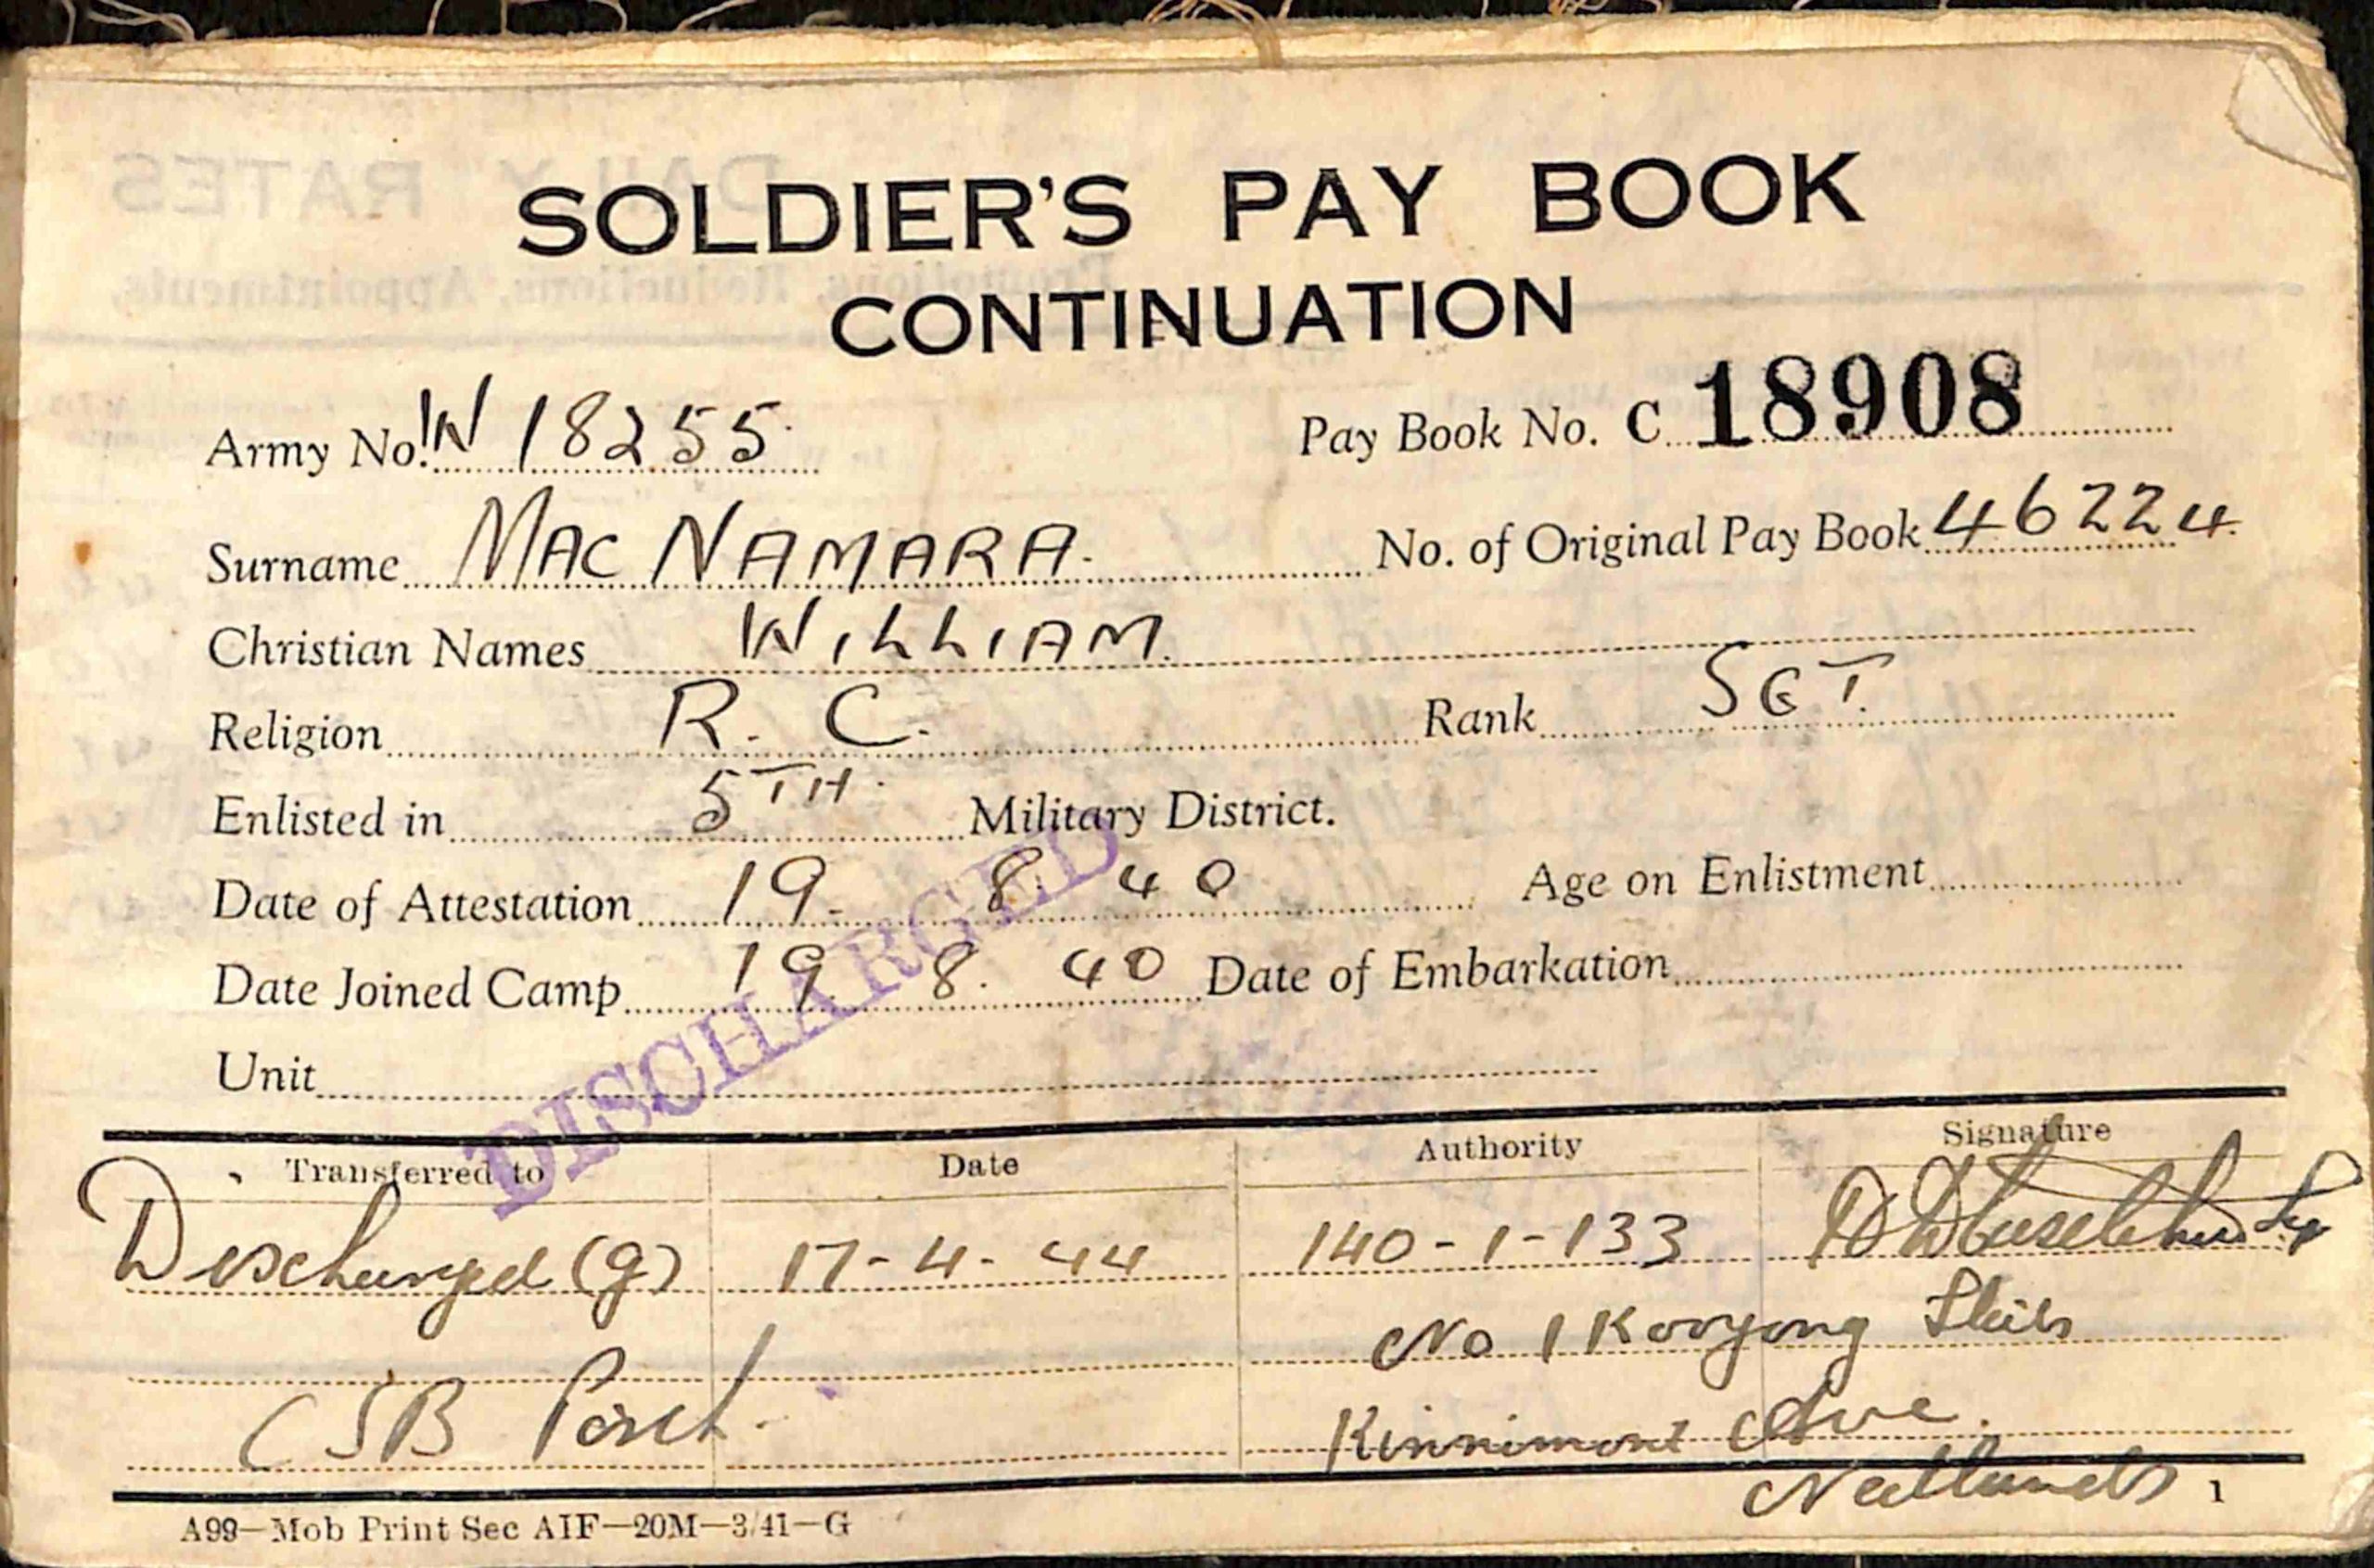 SOLDIER'S PAY BOOK
CONTINUATION
Army No. W 18255. Pay Book No. C 18908
Surname MAC NAMARA. No. of Original Pay Book 46224.
Christian Names WILLIAM.
Religion R. C. Rank SGT.
Enlisted in 5TH. Military District.
Date of Attestation 19. 8. 40 Age on Enlistment
Date Joined Camp 19. 8. 40 Date of Embarkation
Unit
DISCHARGED
Transferred to Date Authority Signature
Discharged (g) 17-4-44 140-1-133
No 1 Kooyong Flats
CSB Perth. Kinnimont Ave.
Nedlands
1
A99—Mob Print Sec AIF—20M—3/41—G
DAILY RATES
Promotions, Reductions, Appointments,